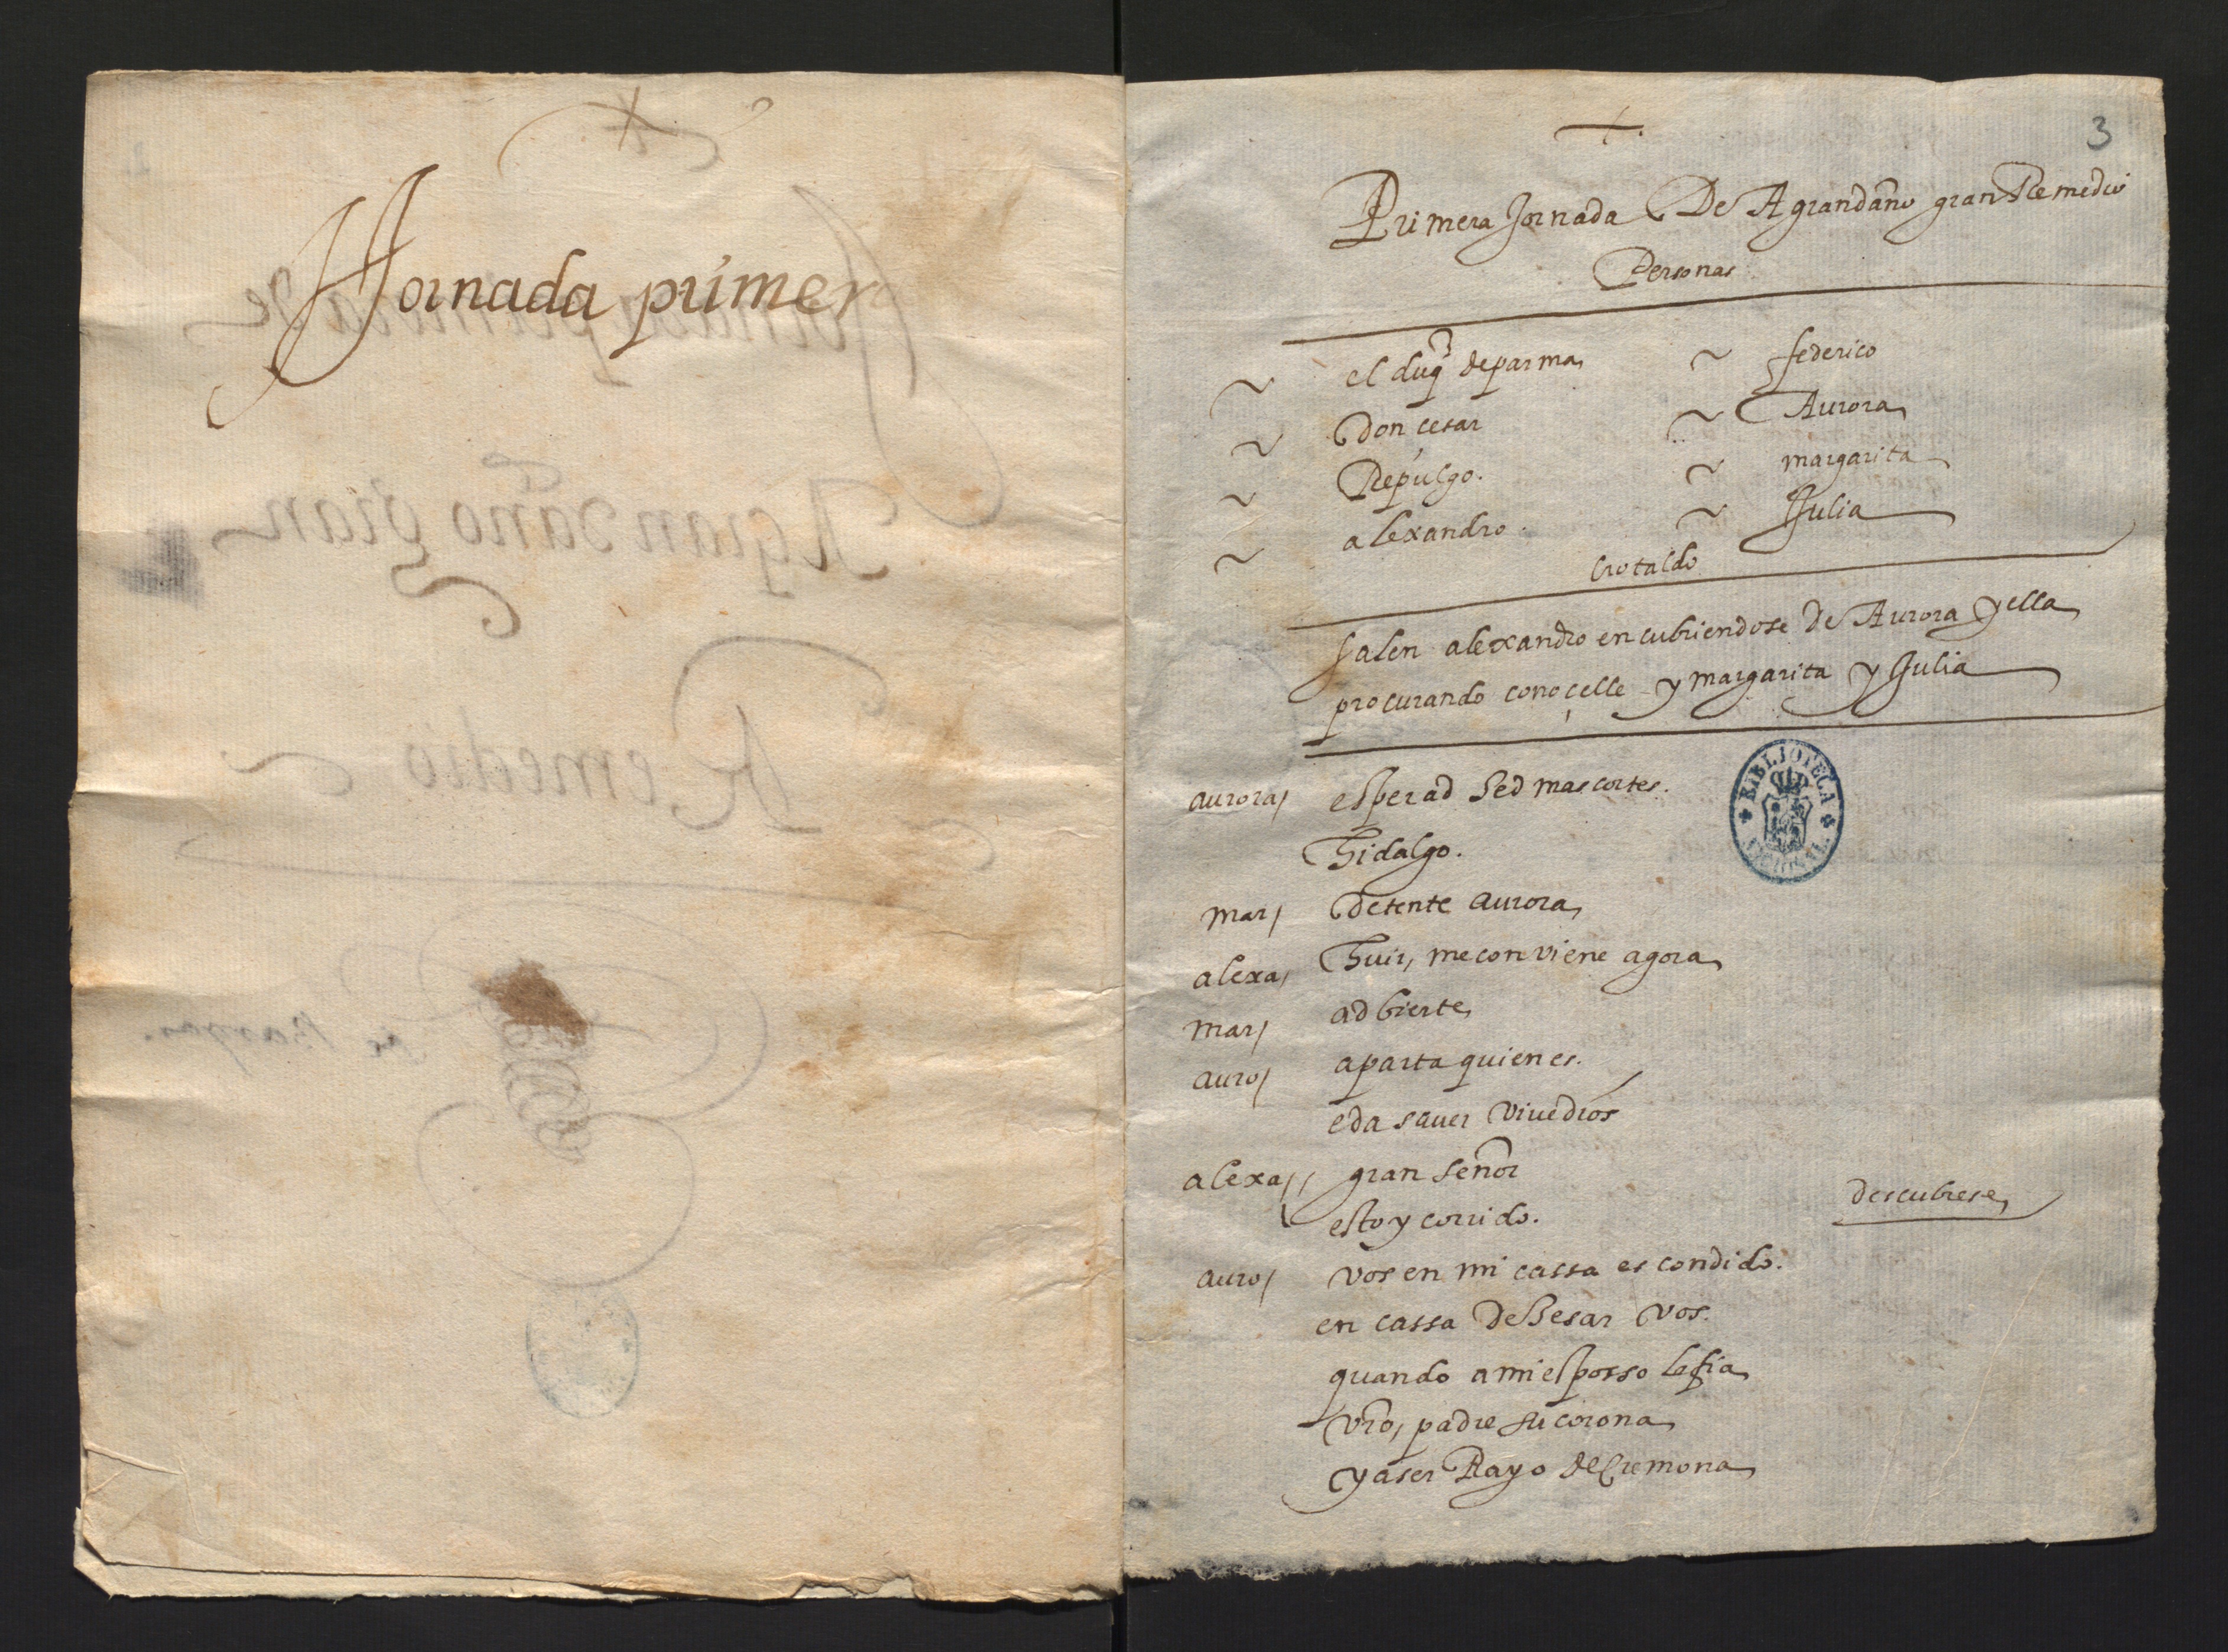 Jornada primer
3
Primera Jornada De A gran daño gran Remedio
Personas
~ el duq̃ de parma ~ federico
~ Don cesar ~ Aurora
~ Repulgo. ~ margarita
~ alexandro. ~ Julia
Crotaldo
salen alexandro encubriendose de Aurora y ella
procurando conoçelle y margarita y Julia
aurora/ esperad sed mas cortes.
hidalgo.
BIBLIOTECA
mar/ detente aurora
alexa/ huir, me conviene agora
mar/ adbierte
auro/ aparta quien es.
e da saver vive dios
alexa// gran señor
estoy corrido. descubrese
auro/ vos en mi cassa escondido.
en cassa de Sesar vos.
quando a mi esposso le fia
vr̃o, padre su corona
y a ser Rayo de Cremona